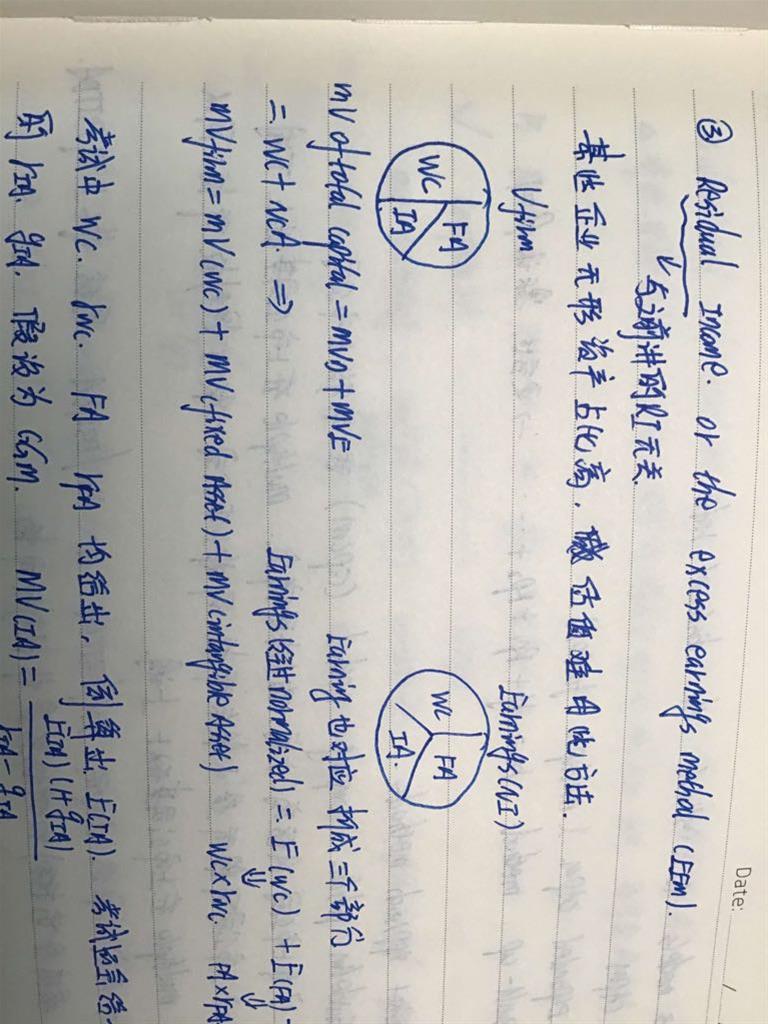 Date: /
③ Residual Inome. or the excess earnings method (EEM).
与之前讲的RI无关.
某些企业无形资产占比高, 做估值难用他方法.
Vfirm Earnings(NI)
WC FA IA WC FA IA.
MV of total capital = MVD + MVE Earning也对应构成三个部分
= WC + NCA. ⇒ Earnings(经过normalized) = E(WC) + E(FA) +
MVfirm = MV(WC) + MV(fixed Asset) + MV(intangible Asset) WC×rwc. FA×rFA
考试中 WC. rwc. FA rFA 均给出, 倒算出 E(IA). 考试还会给
的 rIA. gIA. 假设为 GGM. MV(IA) = E(IA)(1+gIA)
rIA - gIA